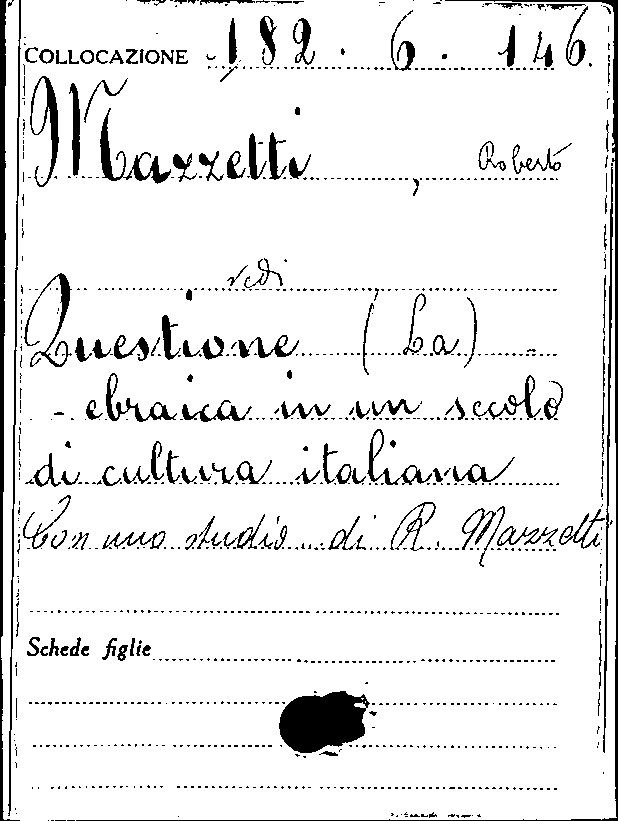 COLLOCAZIONE 182. 6. 146.
Mazzetti, Roberto
vedi
Questione (La) -
- ebraica in un secolo
di cultura italiana
Con uno studio di R. Mazzetti
Schede figlie